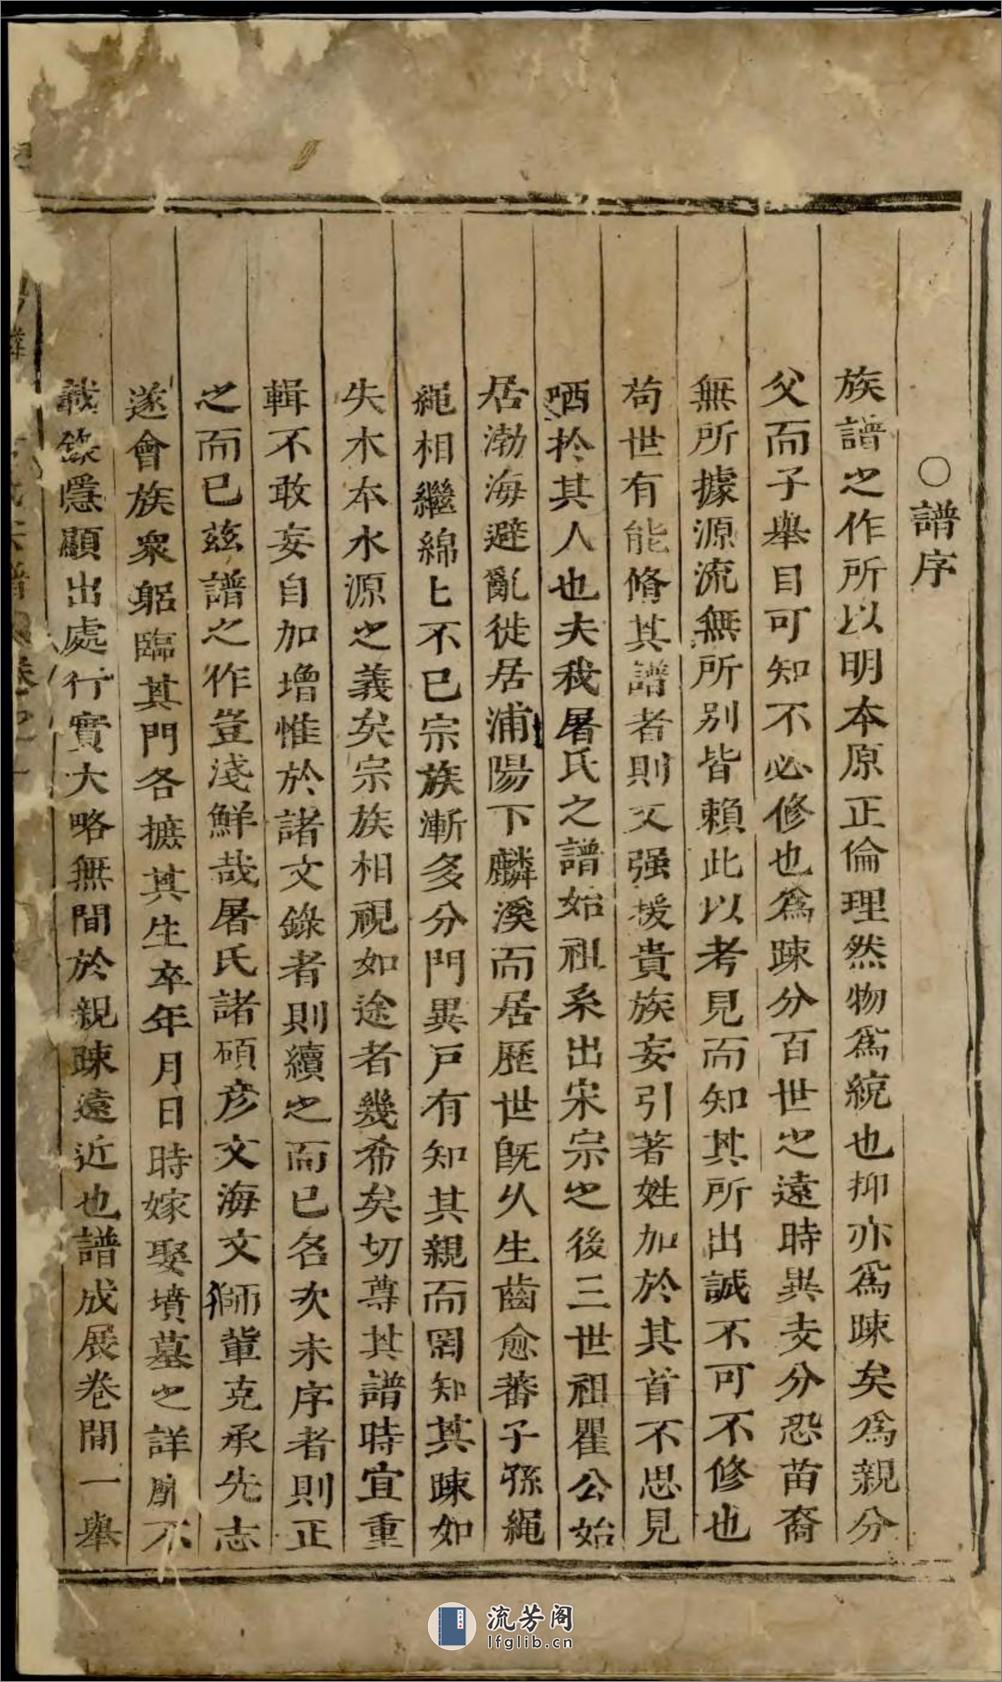 ○譜序
族譜之作所以明本原正倫理然物爲統也抑亦爲踈矣爲親分
父而子舉目可知不必修也爲踈分百世之遠時異支分恐苗裔
無所據源流無所別皆賴此以考見而知其所出誠不可不修也
苟世有能脩其譜者則又强援貴族妄引著姓加於其首不思見
哂扵其人也夫我屠氏之譜始祖系出宋宗之後三世祖瞿公始
居渤海避亂徙居浦陽下麟溪而居歷世旣乆生齒愈蕃子孫繩
繩相繼綿匕不已宗族漸多分門異戸有知其親而罔知其踈如
失木夲水源之義矣宗族相視如途者幾希矣切尊其譜時宜重
輯不敢妄自加增惟於諸文錄者則續之而已名次未序者則正
之而已玆譜之作豈淺鮮哉屠氏諸碩彦文海文獅輩克承先志
遂會族衆躬臨其門各摭其生卒年月日時嫁娶墳墓之詳 不
載錄隱顯出處行實大略無間於親踈遠近也譜成展卷間一舉
流芳阁
lfglib.cn